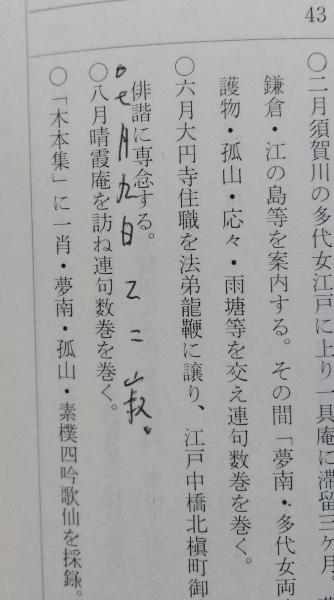 43
○二月須賀川の多代女江戸に上り一具庵に滞留三ケ月、
鎌倉・江の島等を案内する。その間「夢南・多代女両
護物・孤山・応々・雨塘等を交え連句数巻を巻く。
○六月大円寺住職を法弟龍鞭に譲り、江戸中橋北槇町御
俳諧に専念する。
○七月九日 乙二寂。
○八月晴霞庵を訪ね連句数巻を巻く。
○「木本集」に一肖・夢南・孤山・素樸四吟歌仙を採録。